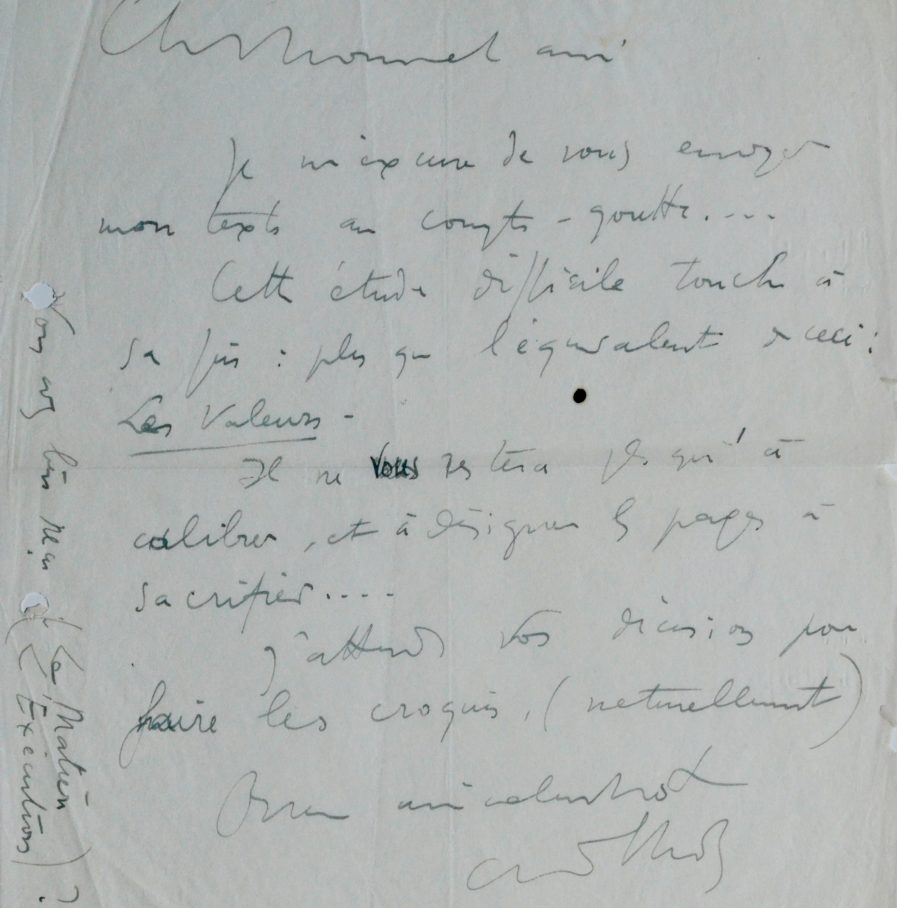 Cher Monnet ami
Je m'excuse de vous envoyer
mon texte au compte-goutte....
Cette étude difficile touche à
sa fin : plus que l'équivalent de ceci :
Les Valeurs -
Il ne vous restera plus qu'à
calibrer, et à désigner les pages à
sacrifier....
J'attends vos décisions pour
faire les croquis, (naturellement)
Bien amicalement
Vous avez bien reçu
(La Matière
L'Exécution) ?